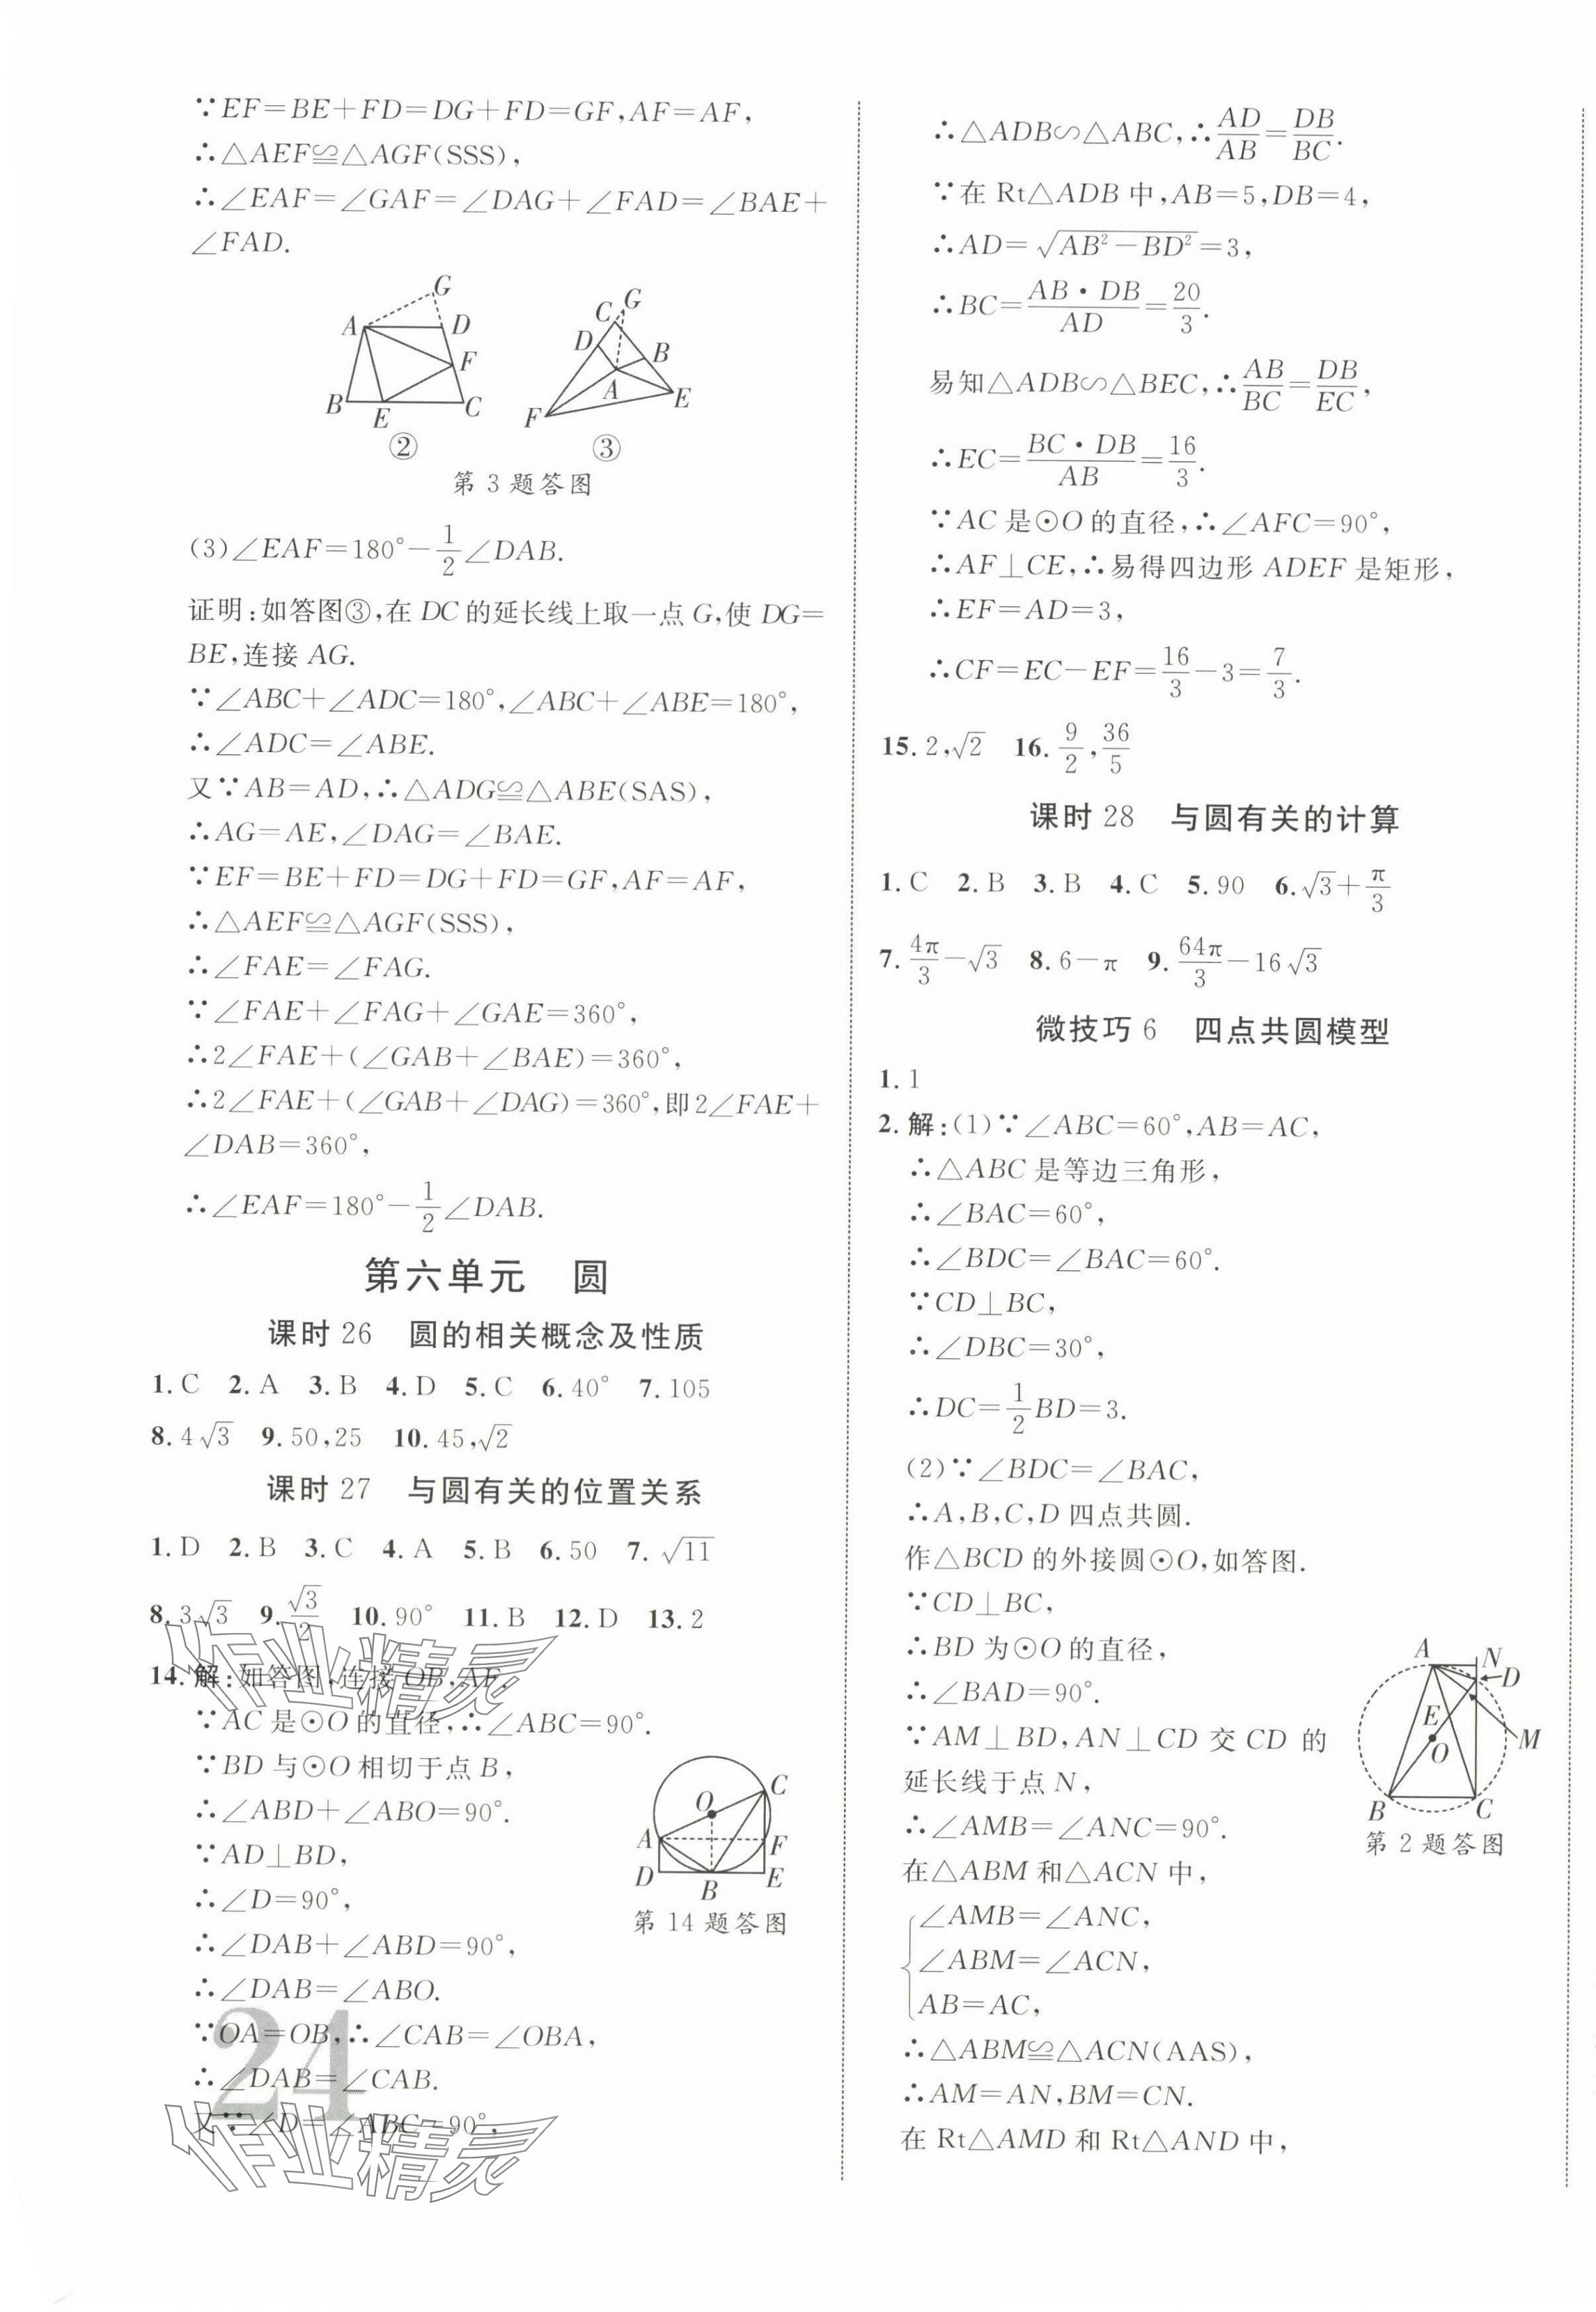 ∵EF=BE+FD=DG+FD=GF,AF=AF,
∴△AEF≌△AGF(SSS),
∴∠EAF=∠GAF=∠DAG+∠FAD=∠BAE+
∠FAD.
G
A D
F
B E C
②
G
C
D B
A
E
F
③
第 3 题答图
(3)∠EAF=180°-1/2∠DAB.
证明:如答图③,在 DC 的延长线上取一点 G,使 DG=
BE,连接 AG.
∵∠ABC+∠ADC=180°,∠ABC+∠ABE=180°,
∴∠ADC=∠ABE.
又∵AB=AD,∴△ADG≌△ABE(SAS),
∴AG=AE,∠DAG=∠BAE.
∵EF=BE+FD=DG+FD=GF,AF=AF,
∴△AEF≌△AGF(SSS),
∴∠FAE=∠FAG.
∵∠FAE+∠FAG+∠GAE=360°,
∴2∠FAE+(∠GAB+∠BAE)=360°,
∴2∠FAE+(∠GAB+∠DAG)=360°,即2∠FAE+
∠DAB=360°,
∴∠EAF=180°-1/2∠DAB.
第六单元 圆
课时 26 圆的相关概念及性质
1.C 2.A 3.B 4.D 5.C 6.40° 7.105
8.4√3 9.50,25 10.45,√2
课时 27 与圆有关的位置关系
1.D 2.B 3.C 4.A 5.B 6.50 7.√11
8.3√3 9.√3/2 10.90° 11.B 12.D 13.2
14.解:如答图,连接 OB,AF,
∵AC 是⊙O 的直径,∴∠ABC=90°.
∵BD 与⊙O 相切于点 B,
∴∠ABD+∠ABO=90°.
∵AD⊥BD,
∴∠D=90°,
∴∠DAB+∠ABD=90°,
∴∠DAB=∠ABO.
∵OA=OB,∴∠CAB=∠OBA,
∴∠DAB=∠CAB.
又∵∠D=∠ABC=90°,
C
O
A F
D B E
第 14 题答图
24
作业精灵
作业精灵
∴△ADB∽△ABC,∴AD/AB=DB/BC.
∵在 Rt△ADB 中,AB=5,DB=4,
∴AD=√(AB²-BD²)=3,
∴BC=AB·DB/AD=20/3.
易知△ADB∽△BEC,∴AB/BC=DB/EC,
∴EC=BC·DB/AB=16/3.
∵AC 是⊙O 的直径,∴∠AFC=90°,
∴AF⊥CE,∴易得四边形 ADEF 是矩形,
∴EF=AD=3,
∴CF=EC-EF=16/3-3=7/3.
15.2,√2 16.9/2,36/5
课时 28 与圆有关的计算
1.C 2.B 3.B 4.C 5.90 6.√3+π/3
7.4π/3-√3 8.6-π 9.64π/3-16√3
微技巧 6 四点共圆模型
1.1
2.解:(1)∵∠ABC=60°,AB=AC,
∴△ABC 是等边三角形,
∴∠BAC=60°,
∴∠BDC=∠BAC=60°.
∵CD⊥BC,
∴∠DBC=30°,
∴DC=1/2BD=3.
(2)∵∠BDC=∠BAC,
∴A,B,C,D 四点共圆.
作△BCD 的外接圆⊙O,如答图.
∵CD⊥BC,
∴BD 为⊙O 的直径,
∴∠BAD=90°.
∵AM⊥BD,AN⊥CD 交 CD 的
延长线于点 N,
∴∠AMB=∠ANC=90°.
在△ABM 和△ACN 中,
∠AMB=∠ANC,
∠ABM=∠ACN,
AB=AC,
∴△ABM≌△ACN(AAS),
∴AM=AN,BM=CN.
在 Rt△AMD 和 Rt△AND 中,
A N
D
E
M
O
B C
第 2 题答图